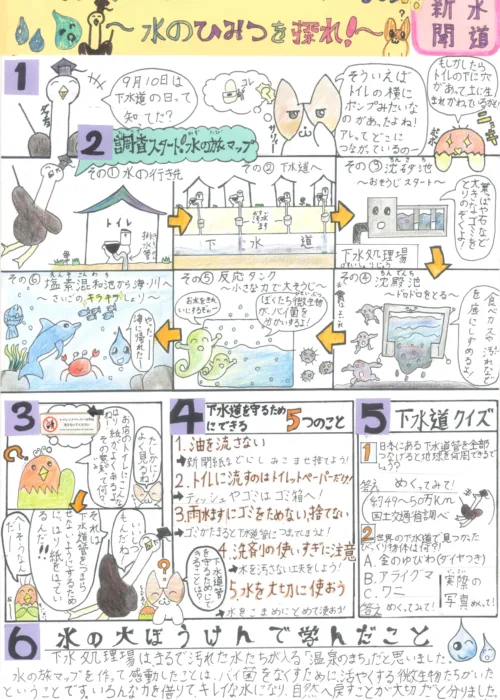 ～水のひみつを探れ!～
水道
新聞
1
9月10日は
下水道の日って
知ってた?
そういえば
トイレの横に
ポンプみたいな
のがあったよね!
アレってどこに
つながっているの―
もしかしたら
トイレの下に穴
があって土に
2 調査スタート!水の旅マップ
その① 水の行き先
トイレ
排水管
その② 下水道へ
下水道
その③ 沈砂池
～おそうじスタート～
下水処理場
その④ 沈殿池
～ドロドロをとる～
食べカスや
を底にしずめるよ
その⑤ 反応タンク
～小さな力で大そうじ～
ぼくたち微生物
が、バイ菌を
分かいするよ!
お水をきれ
いにするぞー
その⑥ 塩素混和池から海・川へ
～さいごのキラキラしょり～
やった
海に帰れたー
3
お店のトイレにこんな
はり紙
たしかに
よく見るね
それは
下水道管をつまら
せないようにするため
にはり紙をはってい
るんだ!!
いいしつ
もんだね
へぇそうなんだ
下水道管
を守るためって
できることは?
4 下水道を守るため
にできる 5つのこと
1.油を流さない
→新聞紙などにしみこませ捨てよう!
2.トイレに流すのはトイレットペーパーだけ!
→ティッシュやゴミはゴミ箱へ!
3.雨水ますにゴミをためない、捨てない
→ゴミがたまると下水道管につまってしまう!
4.洗ざいの使いすぎに注意
→水を汚さない工夫をしよう!
5.水を大切に使おう
→水をこまめにとめて流おう!
5 下水道クイズ
1 日本にある下水道管を全部
つなげると地球を何周できる
でしょう?
答え めくってみて!
約49〜50万Km
国土交通省調べ
2 世界の下水道で見つかった
びっくり物体は何?!
A.金のゆびわ(ダイヤつき)
B.アライグマ
C.ワニ
答え めくってみて!
実際の
写真
めくって!
6 水の大ぼうけんで学んだこと
下水処理場はまるで汚れた水たちが入る「温泉のまち」だと思いました。
水の旅マップを作って感動したことは、バイ菌をなくすために活やくする微生物たちがいた
ということです。いろんな力を借りてキレイな水になり、自然へ戻すことが大切だと分かりました!